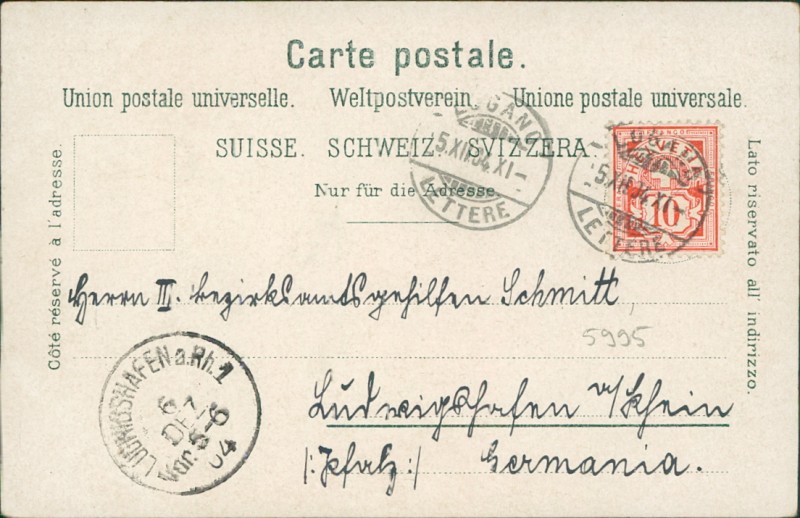 Carte postale.
Union postale universelle. Weltpostverein. Unione postale universale.
SUISSE. SCHWEIZ. SVIZZERA.
Nur für die Adresse.
Côté réservé à l'adresse.
Lato riservato all' indirizzo.
LUGANO
5.XII.04.XI-
LETTERE
10
LUGANO
5.XII.04.XI-
LETTERE
Herrn II. Bezirksamtsgehilfen Schmitt,
5995
Ludwigshafen a/Rhein
/:Pfalz:/ Germania.
LUDWIGSHAFEN a.Rh. 1
6
DEZ
5-6
04